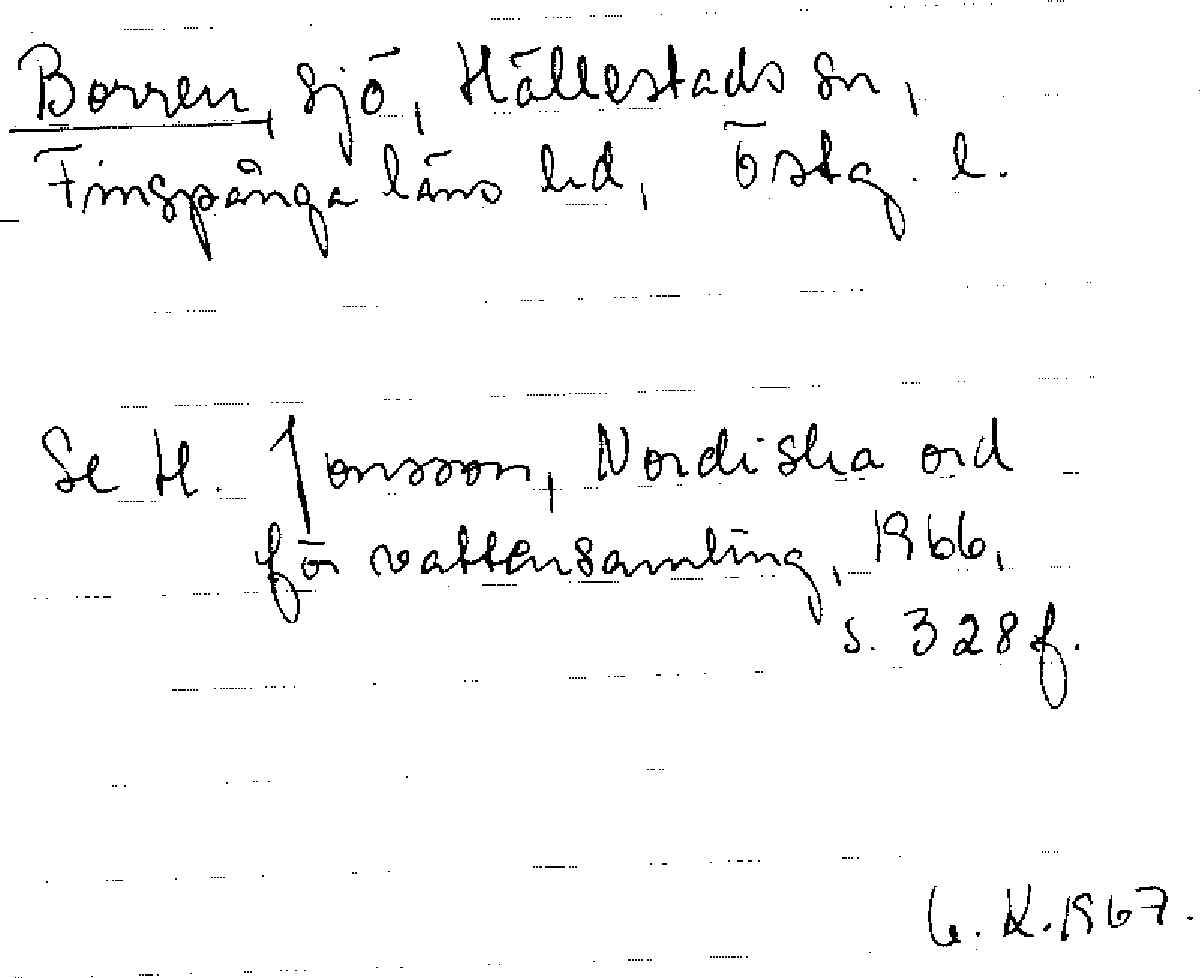 Borren, sjö, Hällestads sn,
Finspånga läns hd, Östg. l.
Se H. Jonsson, Nordiska ord
för vattensamling, 1966,
s. 328 f.
G. K. 1967.